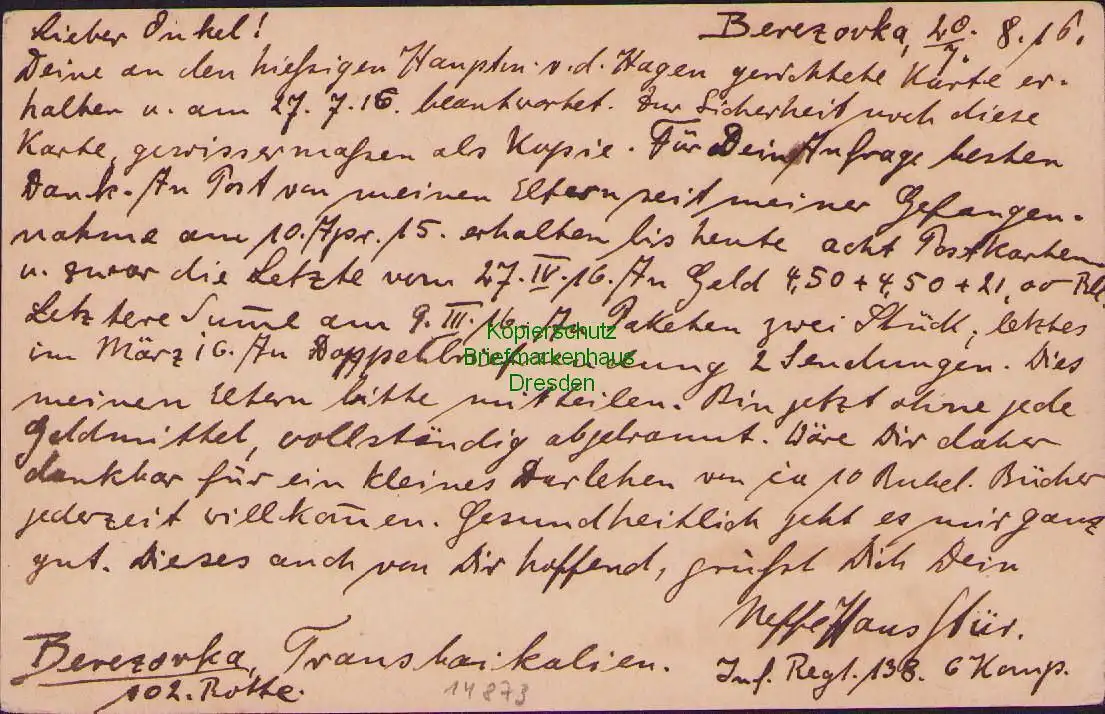 Lieber Onkel!
Berezovka, 28. 8. 16.
7.
Deine an den hießigen Hauptm. v. d. Hagen gerichtete Karte er-
halten u. am 27. 7. 16. beantwortet. Zur Sicherheit noch diese
Karte, gewissermaßen als Kopie. Für Dein Anfrage besten
Dank. An Post von meinen Eltern seit meiner Gefangen-
nahme am 10. Apr. 15. erhalten bis heute acht Postkarten
u. zwar die Letzte vom 27. IV. 16. An Geld 4,50 + 4,50 + 21,00 Rbl.
Letztere Sum̄e am 9. III. 16. An Paketen zwei Stück, letztes
im März 16. An 2 Sendungen. Dies
Kopierschutz
Briefmarkenhaus
Dresden
meinen Eltern bitte mitteilen. Bin jetzt ohne jede
Geldmittel, vollständig abgebrannt. Wäre Dir daher
dankbar für ein kleines Darlehen von ca 10 Rubel. Bücher
jederzeit willkom̄en. Gesundheitlich geht es mir ganz
gut. Dieses auch von Dir hoffend, grüßt Dich Dein
Neffe Hans Stür.
Berezovka, Transbaikalien.
Inf. Regt. 138. 6 Komp.
102. Rotte.
14873